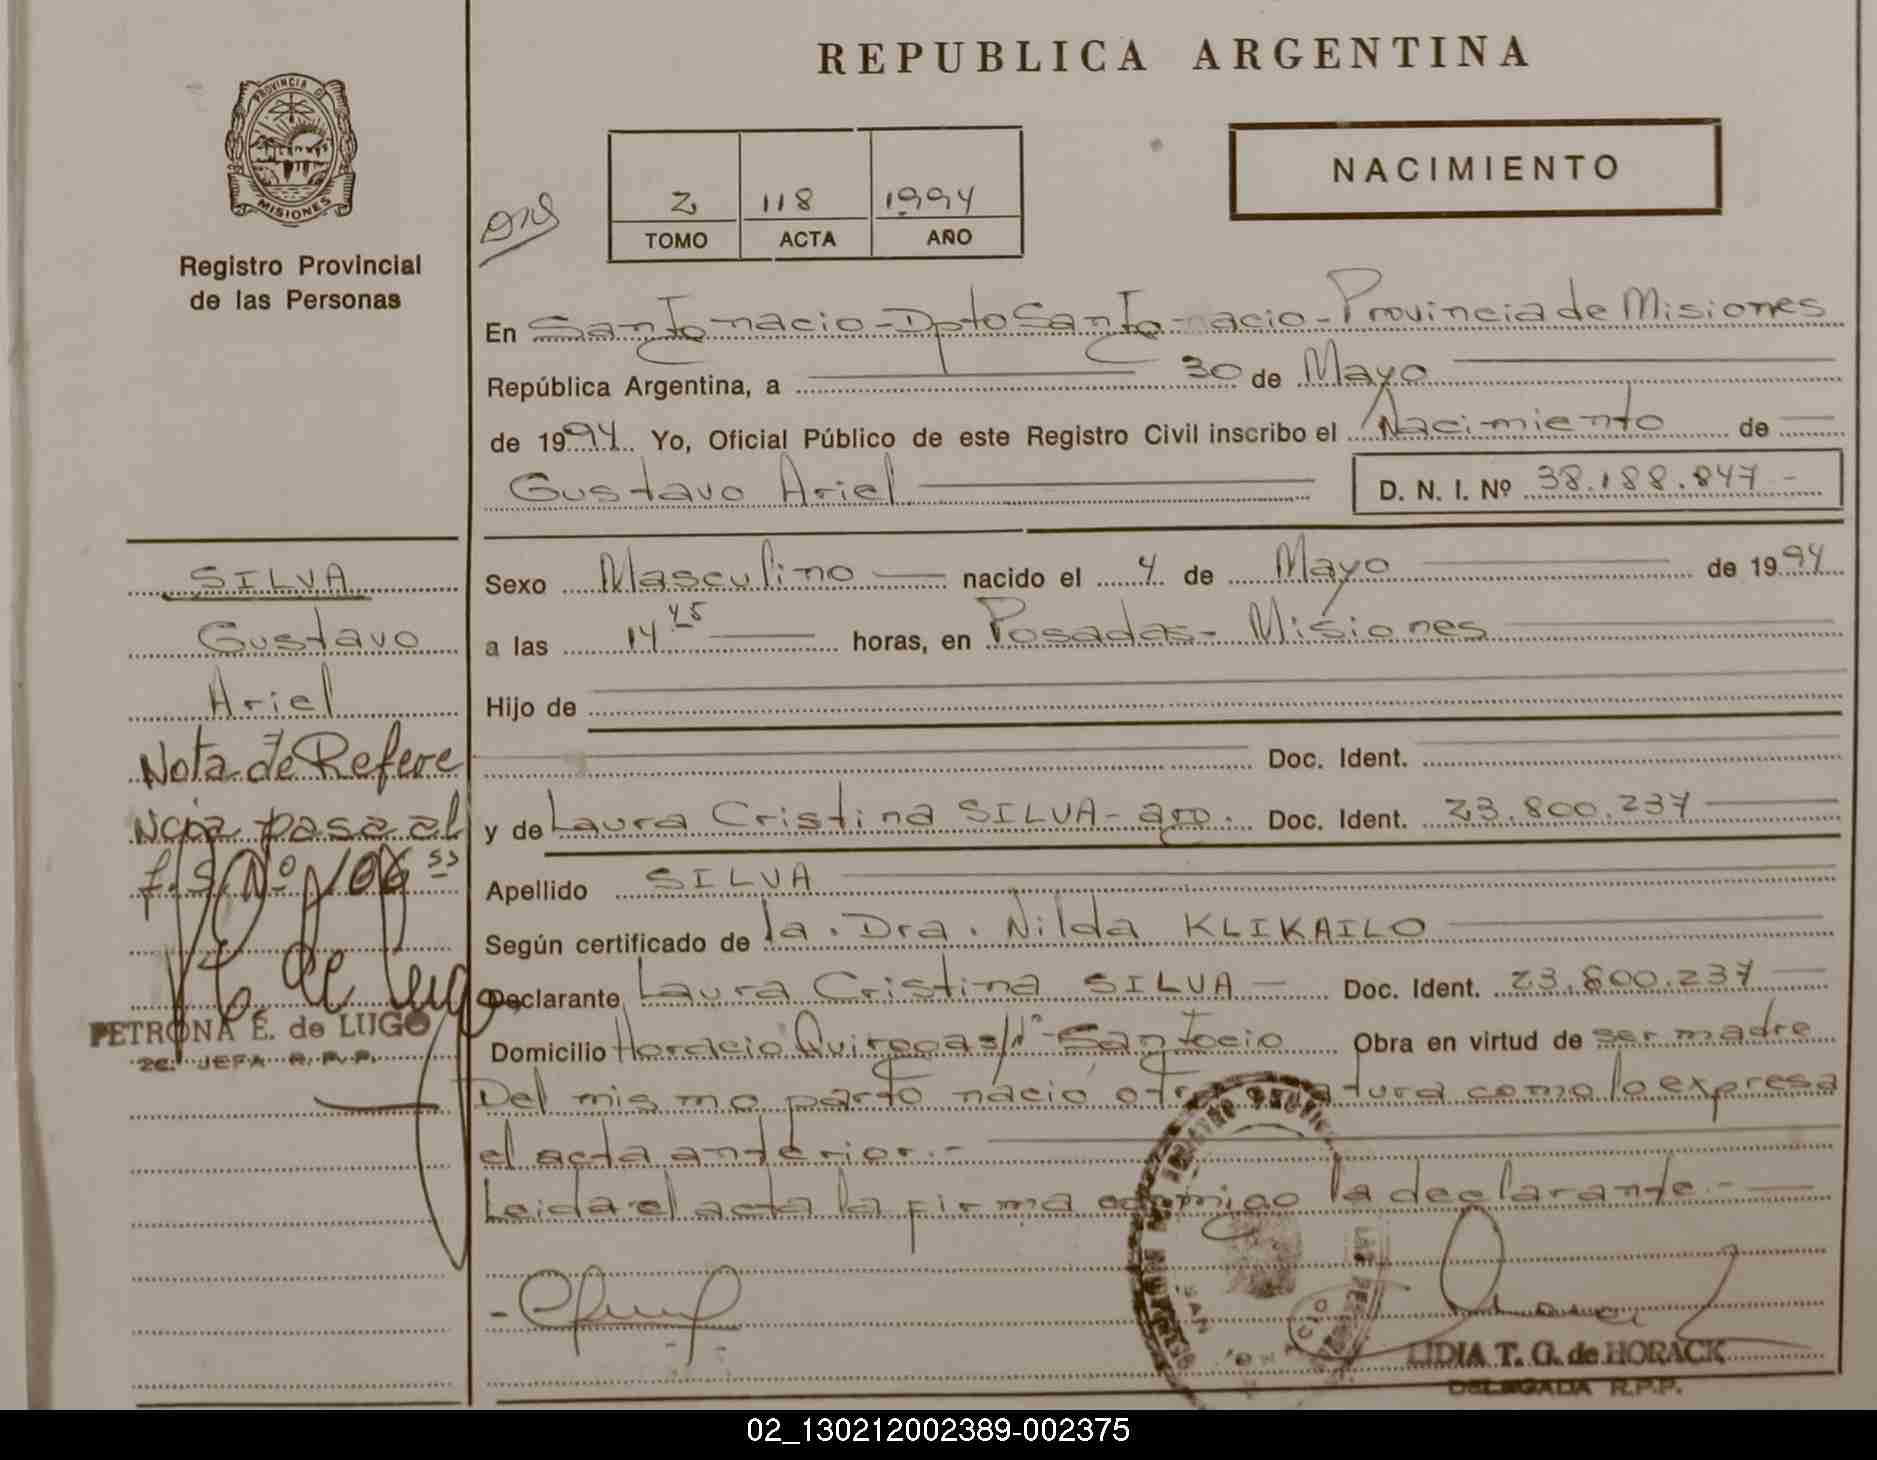 REPUBLICA ARGENTINA
PROVINCIA D
MISIONES
Registro Provincial
de las Personas
NACIMIENTO
2 118 1994
TOMO ACTA AÑO
En San Ignacio - Dpto San Ignacio - Provincia de Misiones
República Argentina, a 30 de Mayo
de 1994. Yo, Oficial Público de este Registro Civil inscribo el Nacimiento de
Gustavo Ariel D. N. I. Nº 38.188.847 -
SILVA
Gustavo
Ariel
Nota de Refere
ncia pasa al
Sexo Masculino nacido el 4 de Mayo de 1994
a las 14 45 horas, en Posadas - Misiones
Hijo de
Doc. Ident.
y de Laura Cristina SILVA - arg. Doc. Ident. 23.800.237
Apellido SILVA
Según certificado de la . Dra . Nilda KLIKAILO
Declarante Laura Cristina SILVA - Doc. Ident. 23.800.237
Domicilio Horacio Quiroga s/nº - San Obra en virtud de ser madre
Del mismo parto nació otra criatura como lo expresa
el acta anterior.-
Leida el acta la firma conmigo la declarante.-
PETRONA E. de LUGO
JEFA R.P.P.
LIDIA T. G. de HORACK
DELEGADA R.P.P.
02_130212002389-002375